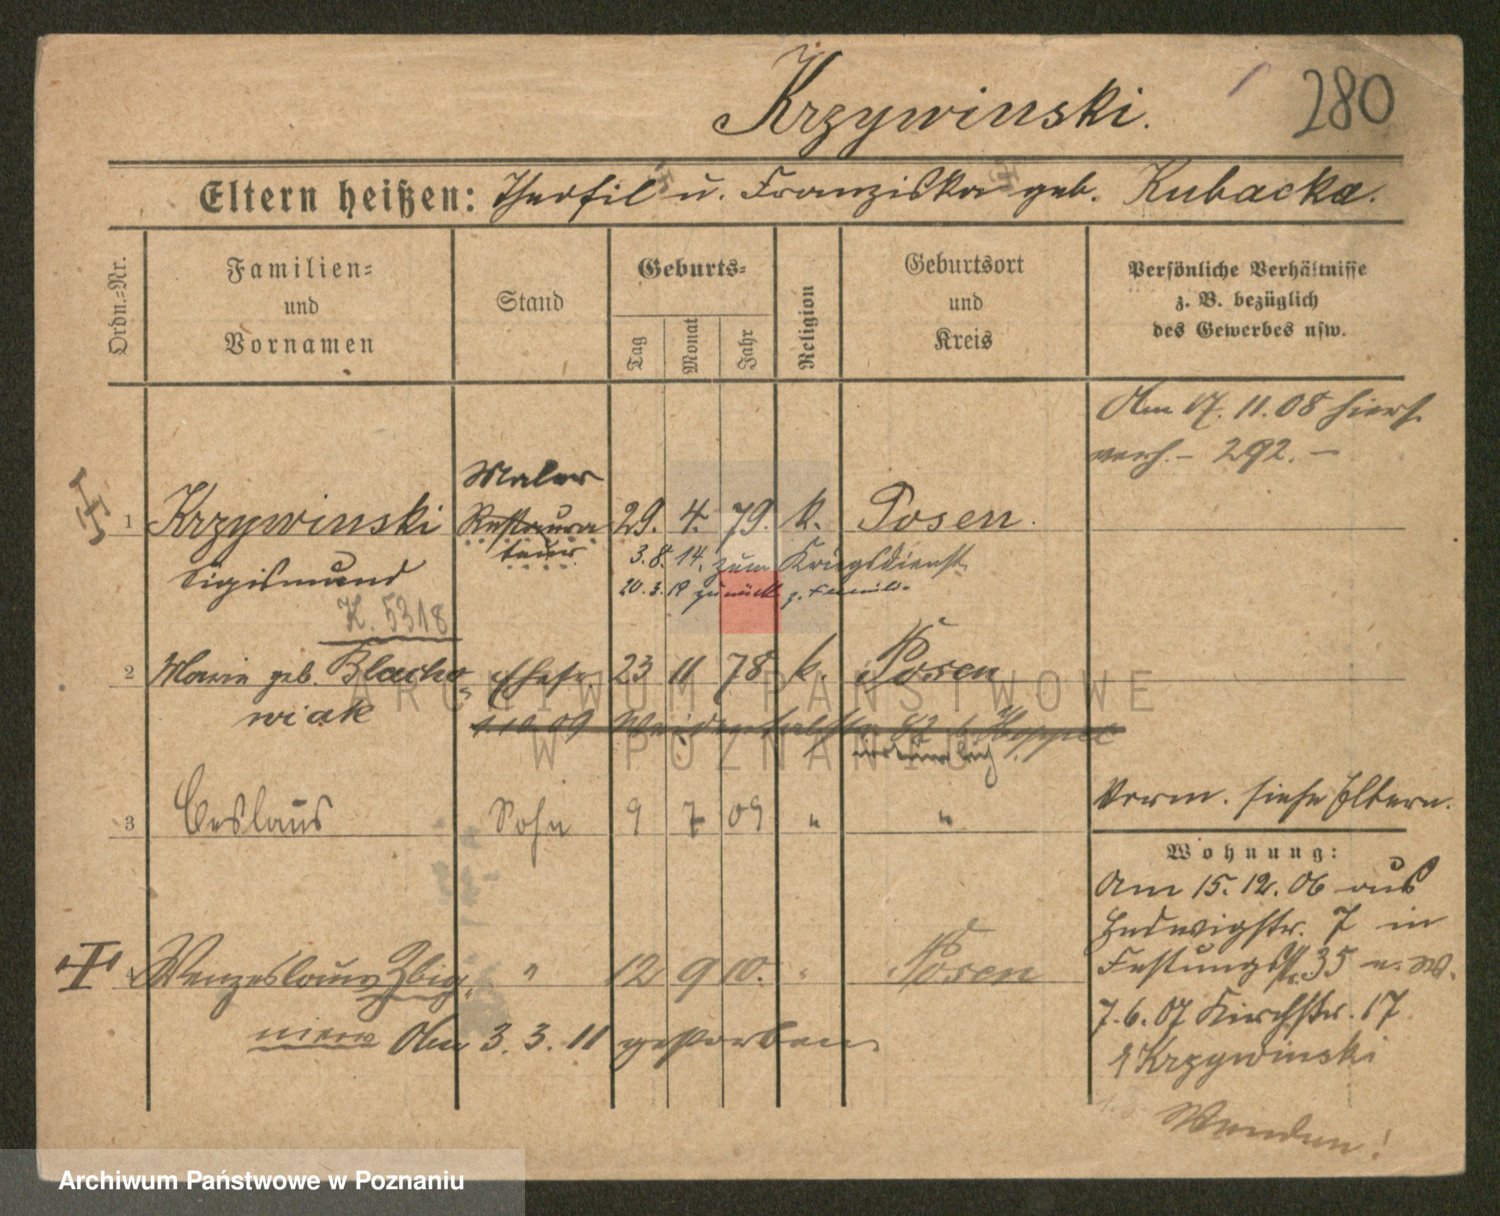 Krzywinski.
280
Eltern heißen: Theofil u. Franziska geb. Kubacka.
Ordn.-Nr.
Familien-
und
Vornamen
Stand
Geburts-
Tag
Monat
Jahr
Religion
Geburtsort
und
Kreis
Persönliche Verhältnisse
z. B. bezüglich
des Gewerbes usw.
Am 17. 11. 08 hiers.
verh. - 292. -
Maler
1 Krzywinski Restaura 29. 4. 79. k. Posen.
teur
3. 8. 14. zum Kriegsdienst
Sigismund
20. 3. 18 zurück z. Famili.
K. 5318
2 Marie geb. Blacho- Ehefr. 23 11 78 k. Posen
wiak
1.10.09
3 Ceslaus Sohn 9 7 09 " "
Vorm. siehe Eltern.
Wohnung:
Am 15. 12. 06 aus
Hedwigstr. 7 in
Festungsstr. 35 n. W.
7. 6. 07 Kirchstr. 17
Krzywinski
Wenden!
Wenzeslaus Zbig- " 12 9 10. " Posen
niew Am 3. 3. 11 gestorben
ARCHIWUM PAŃSTWOWE
W POZNANIU
Archiwum Państwowe w Poznaniu